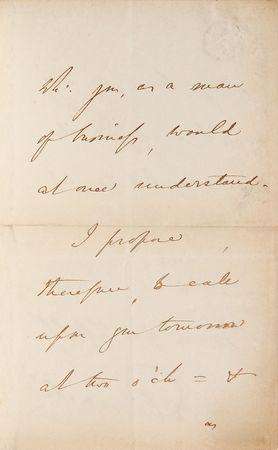 you, as a man
of business, would
at once understand.
I propose,
therefore, to call
upon you tomorrow
at two o'ck = &
as